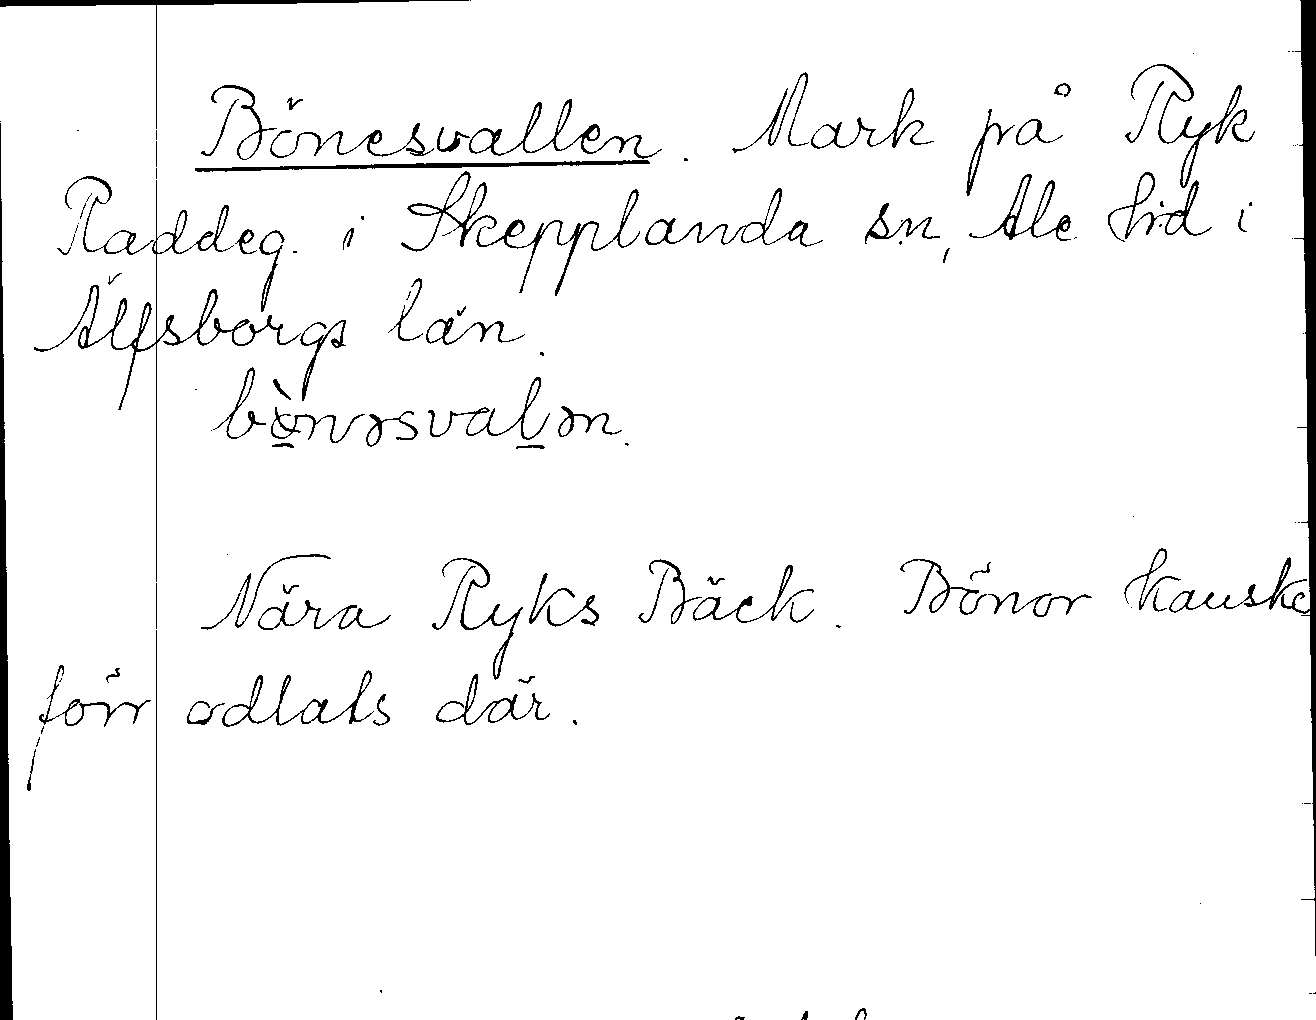 Bönesvallen. Mark på Ryk
Raddeg. i Skepplanda sn, Ale hd i
Älfsborgs län.
bö̀nəsvalən.
Nära Ryks Bäck. Bönor kanske
förr odlats där.